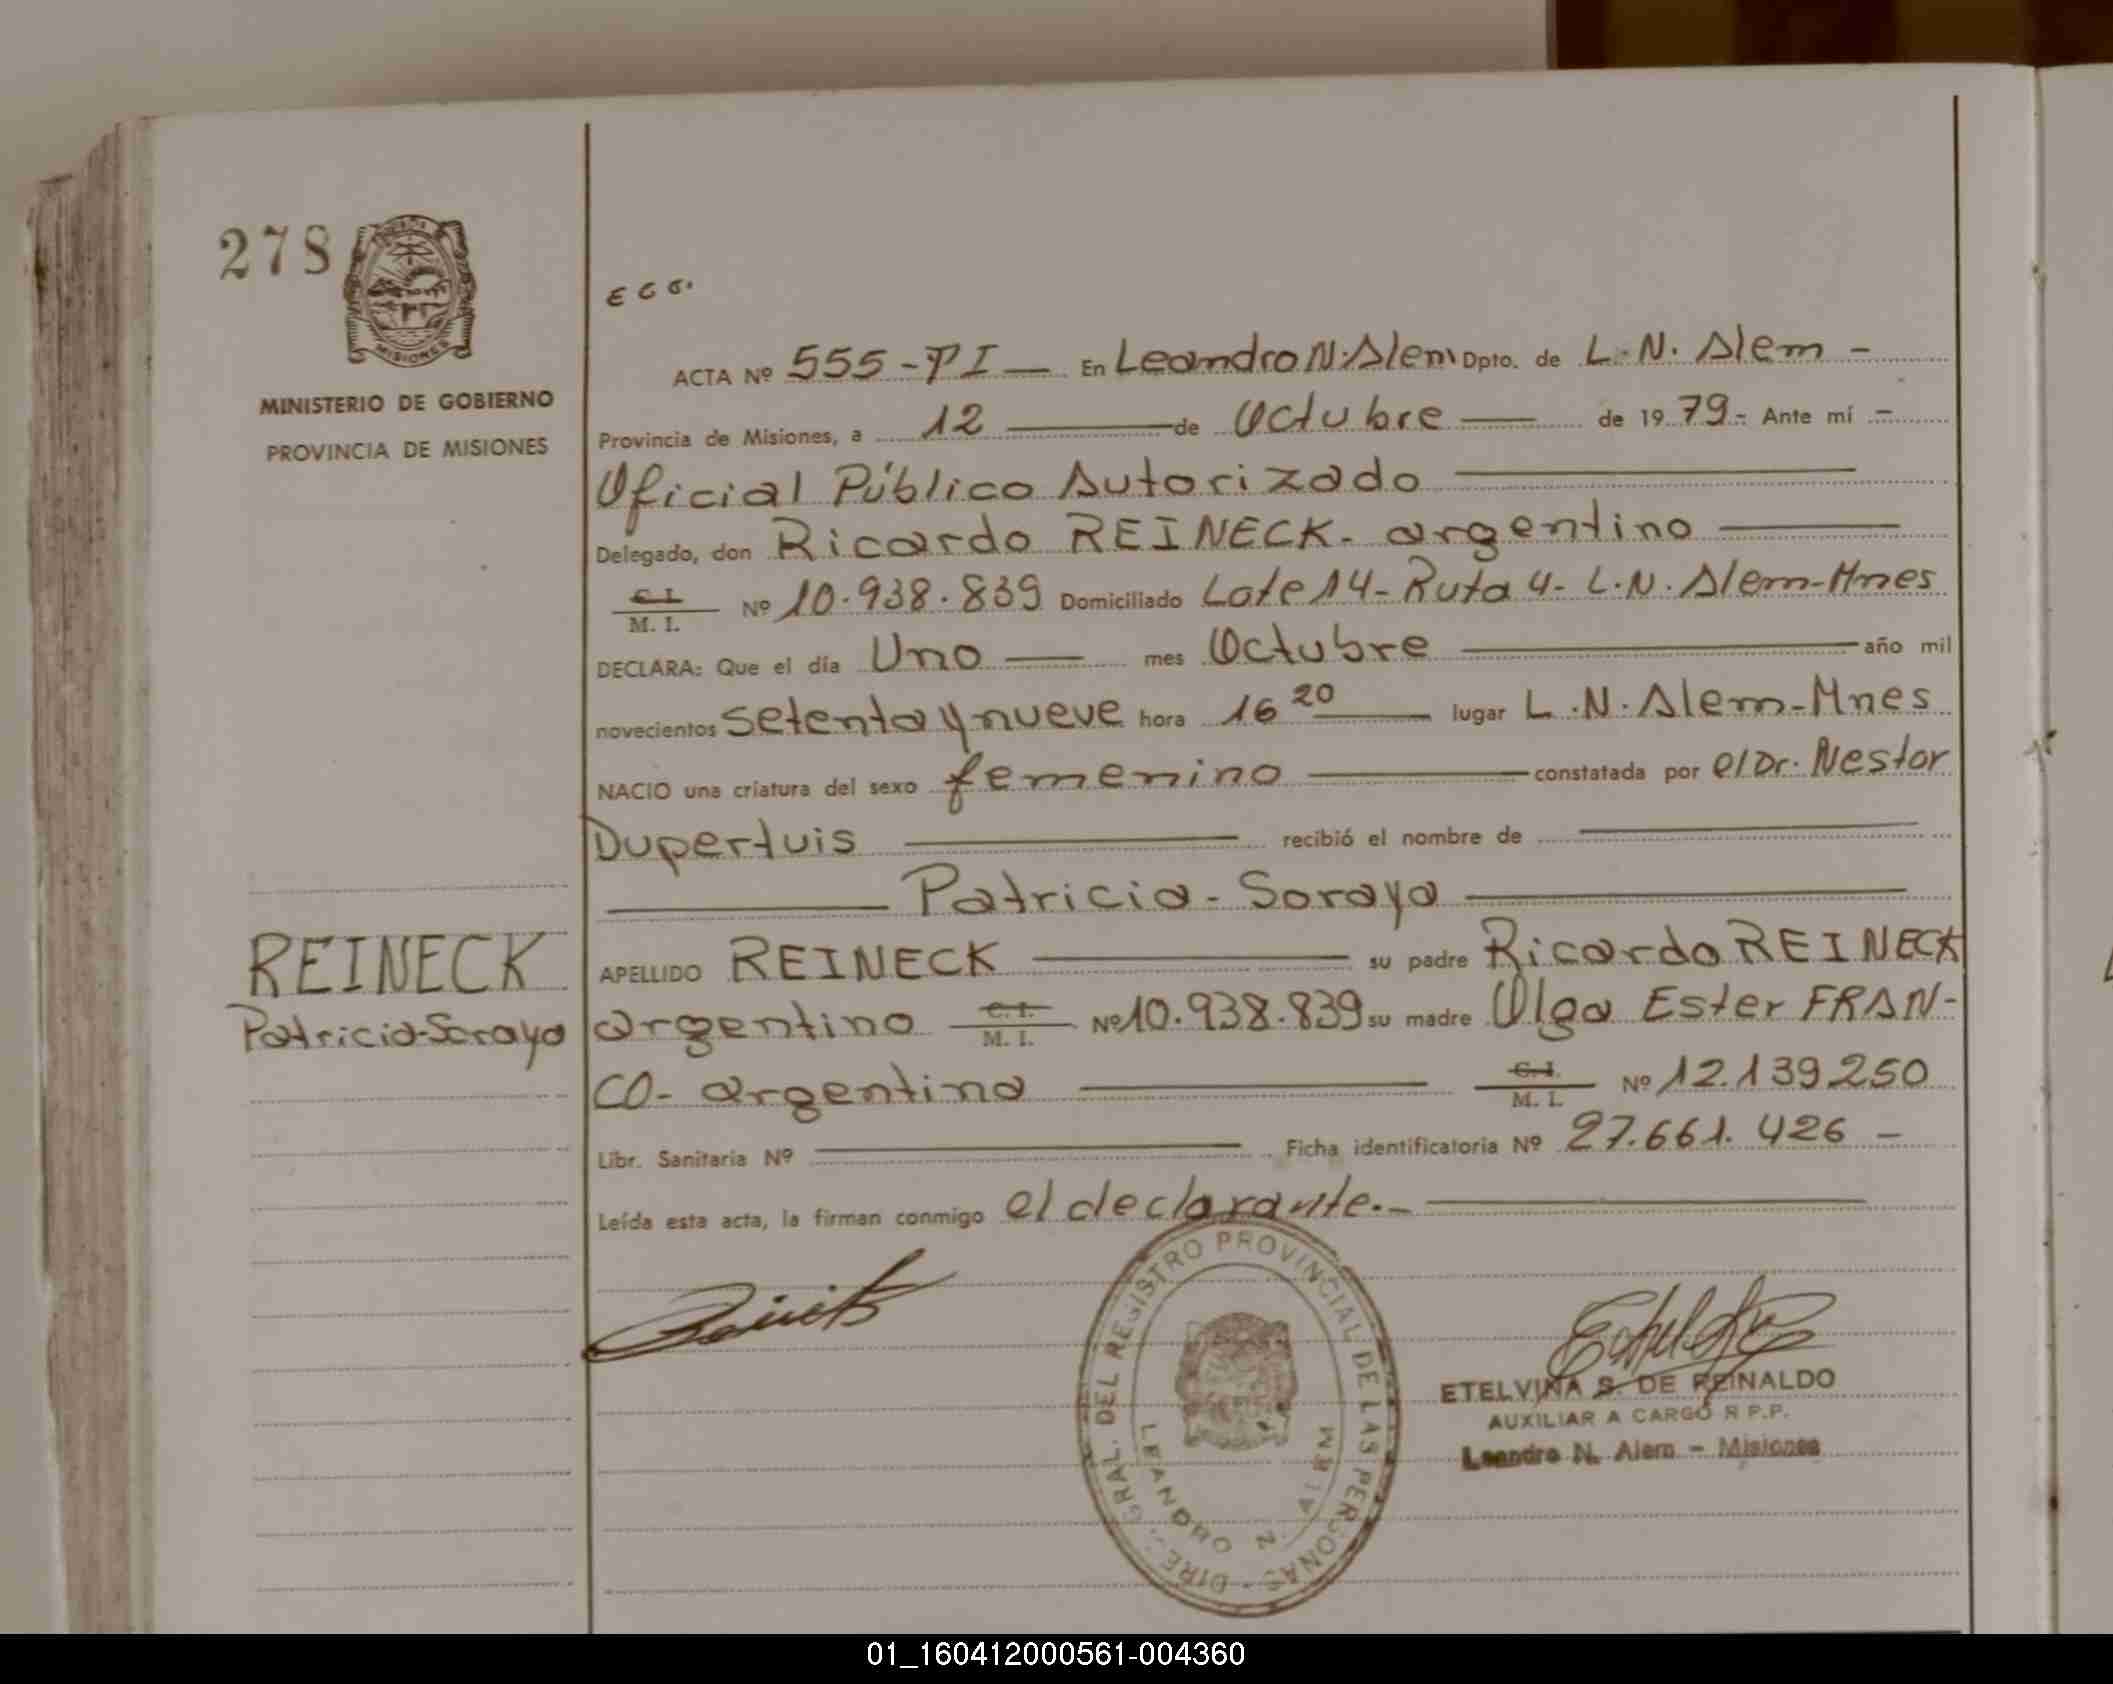 278
MISIONES
MINISTERIO DE GOBIERNO
PROVINCIA DE MISIONES
ACTA Nº 555-TI — En Leandro N. Alem Dpto. de L. N. Alem -
Provincia de Misiones, a 12 — de Octubre — de 1979.- Ante mí -
Oficial Público Autorizado —
Delegado, don Ricardo REINECK. argentino —
C. I. / M. I. Nº 10.938.839 Domiciliado Lote 14- Ruta 4- L.N. Alem-Mnes
DECLARA: Que el día Uno — mes Octubre — año mil
novecientos setenta y nueve hora 16 20 — lugar L.N. Alem-Mnes
NACIO una criatura del sexo femenino — constatada por el Dr. Nestor
Dupertuis — recibió el nombre de —
— Patricia-Soraya —
REINECK
Patricia-Soraya
APELLIDO REINECK — su padre Ricardo REINECK
argentino C. I. / M. I. Nº 10.938.839 su madre Olga Ester FRAN-
CO- argentina — C. I. / M. I. Nº 12.139.250
Libr. Sanitaria Nº — Ficha identificatoria Nº 27.661.426 -
Leída esta acta, la firman conmigo el declarante.- —
DIREC. GRAL. DEL REGISTRO PROVINCIAL DE LAS PERSONAS
LEANDRO N. ALEM
ETELVINA S. DE REINALDO
AUXILIAR A CARGO R P.P.
Leandro N. Alem - Misiones
01_160412000561-004360